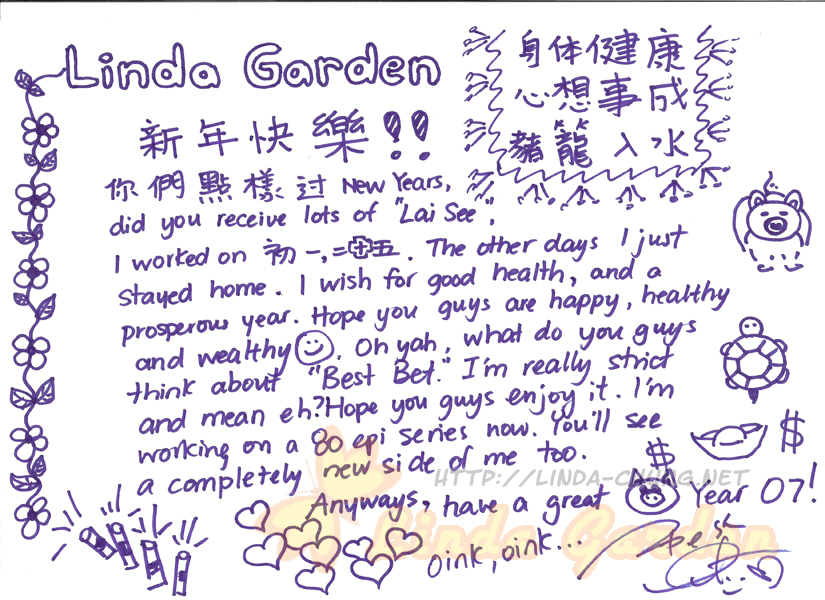 Linda Garden
身体健康
心想事成
豬籠入水
新年快樂!!
你們點樣过 New Years,
did you receive lots of "Lai See",
I worked on 初一,二
The other days I just
stayed home. I wish for good health, and a
prosperous year. Hope you guys are happy, healthy
and wealthy. Oh yah, what do you guys
think about "Best Bet." I'm really strict
and mean eh? Hope you guys enjoy it. I'm
working on a 80 epi series now. You'll see
a completely new side of me too.
HTTP://LINDA-CHUNG.NET
Anyways, have a great Year 07!
Oink, oink...
Linda Garden
$
$